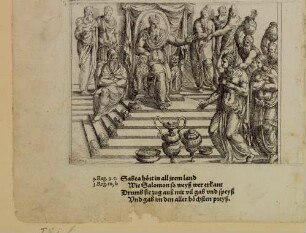 Sabea hört in all jrem land
Wie Salomon so weyß wer erkant
Drumb sie zog auß mit vil gab vnd speyß
Vnd gab im den aller höchsten preyß.